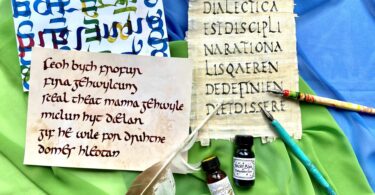 feoh byth frofur
fira gehwylcum
sceal theah manna gehwylc
miclun hyt dælan
gif hé wile for drihtne
domes hleotan
DIALECTICA
ESTDISCIPLI
NARATIONA
LISQAEREN
DEDEFINIEN
DIETDISSERE